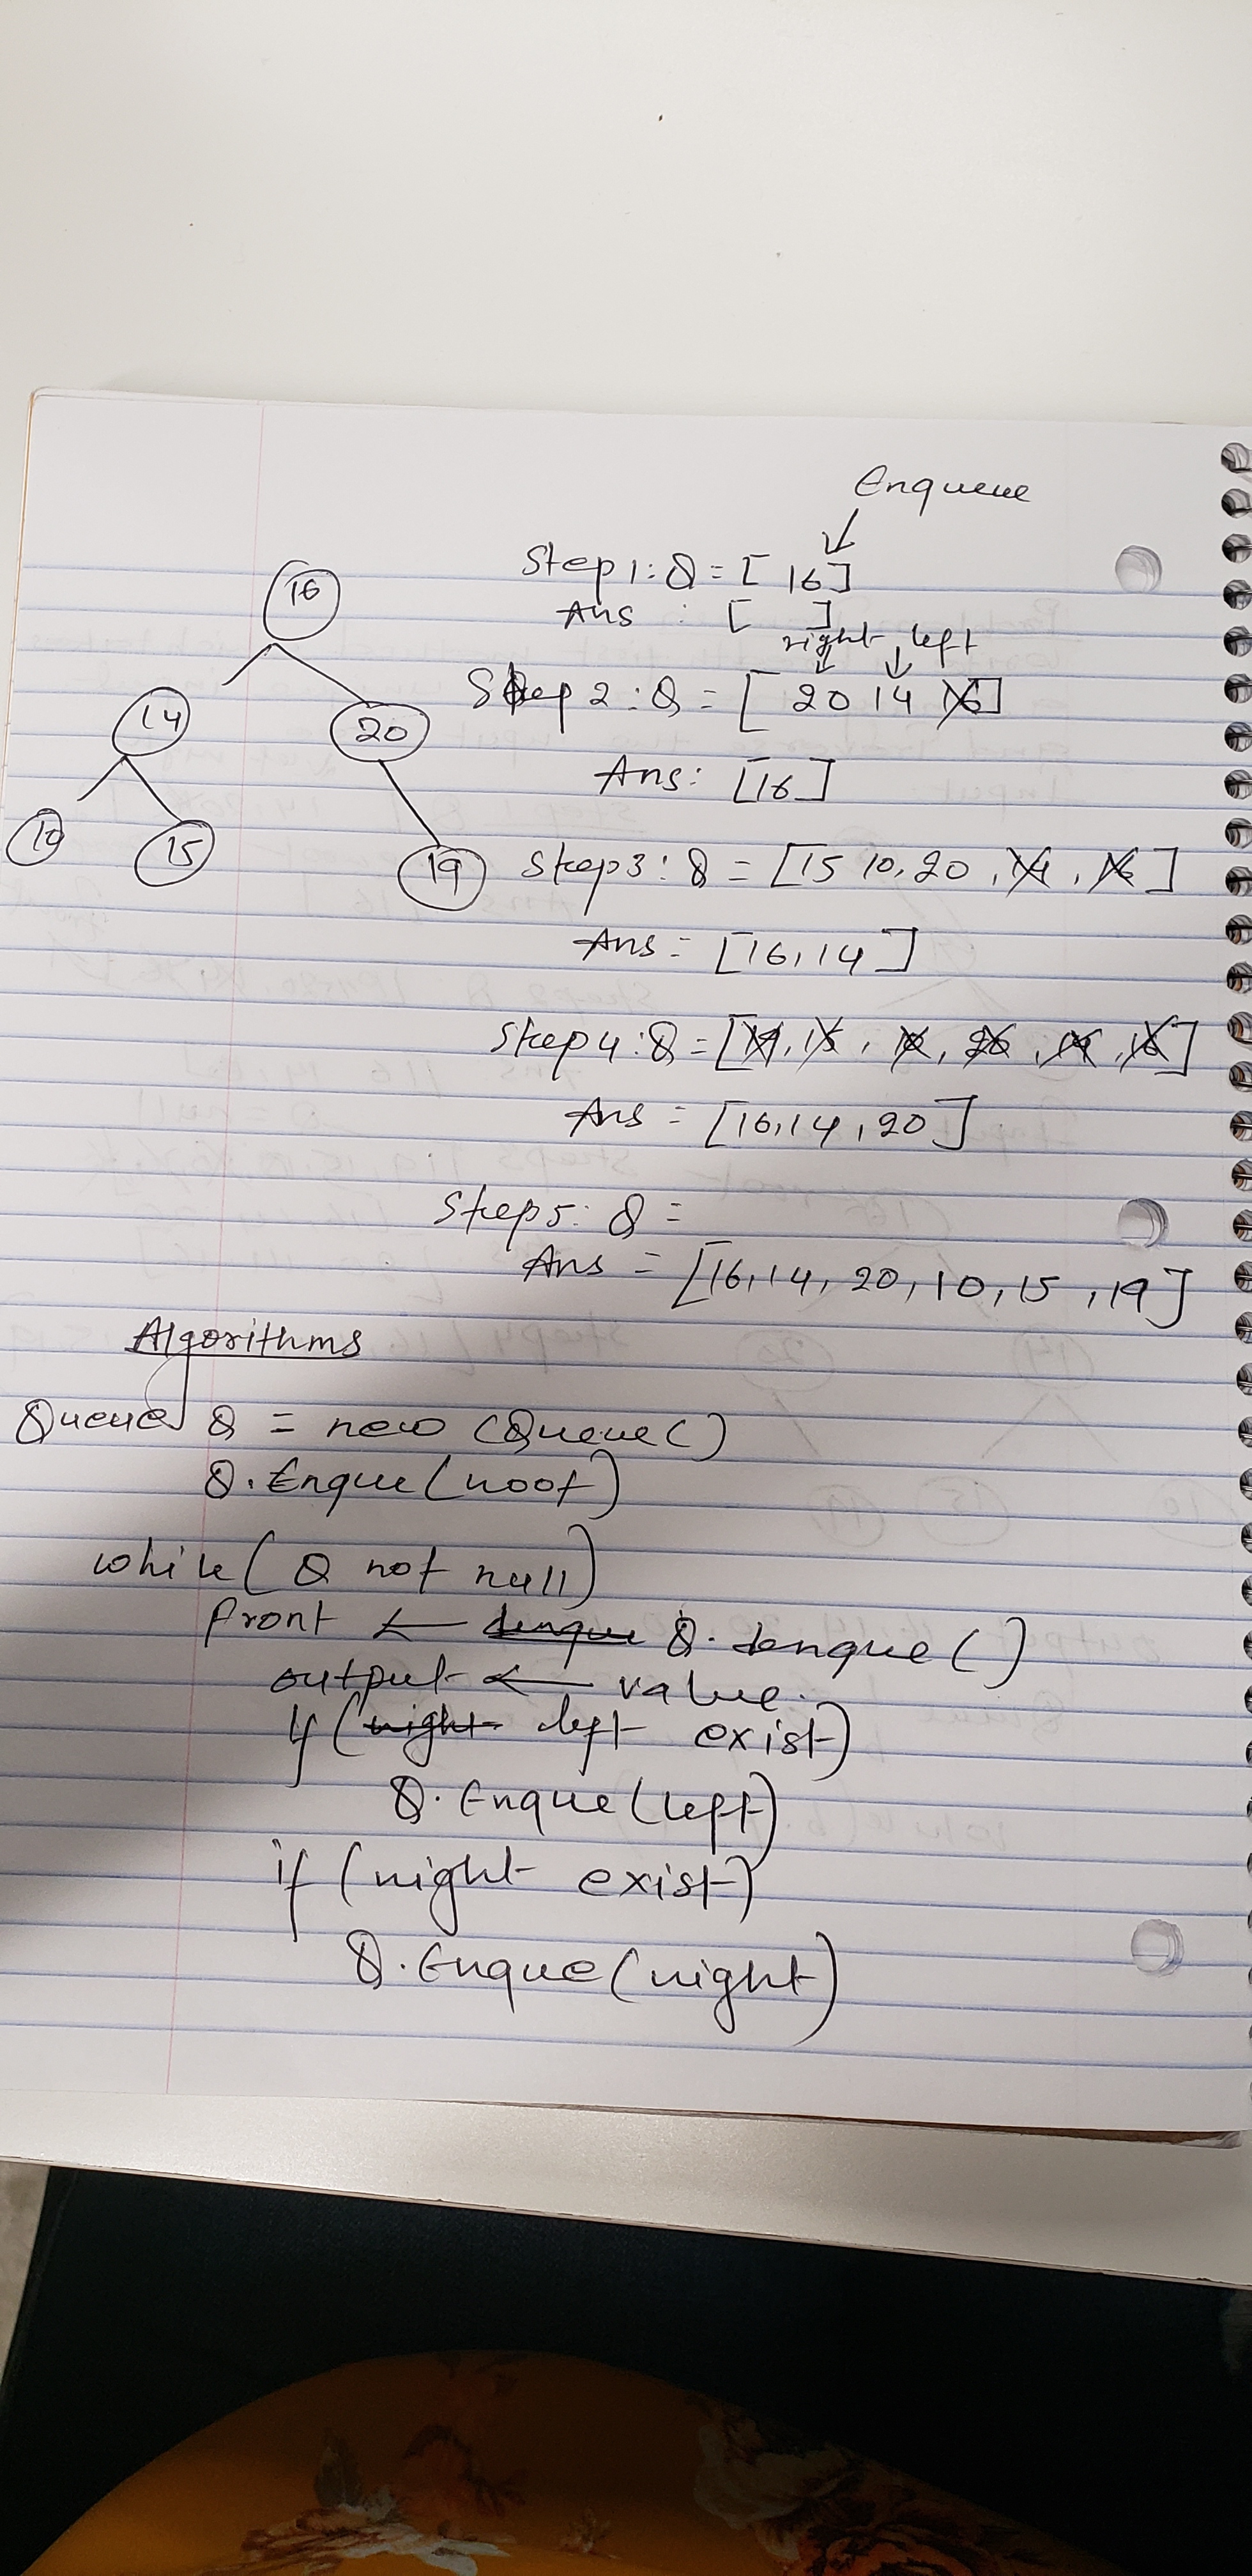 Enqueue
Step 1: Q = [ 16]
Ans : [ ]
right left
Step 2 : Q = [ 20 14 16]
Ans: [16]
Step 3 : Q = [15 10, 20 , 14 , 16 ]
Ans = [16, 14 ]
Step 4 : Q = [19, 15 , 10, 20 , 14 , 16 ]
Ans = [16, 14 , 20 ]
Step 5: Q =
Ans = [16, 14, 20, 10, 15 , 19 ]
16
14
20
10
15
19
Algorithms
Queue Q = new (Queue ( )
Q. Enque (root)
while ( Q not null)
front ← denque Q. denque ( )
output ← value.
If (right left exist)
Q. Enque (left)
if (right exist)
Q. Enque (right)